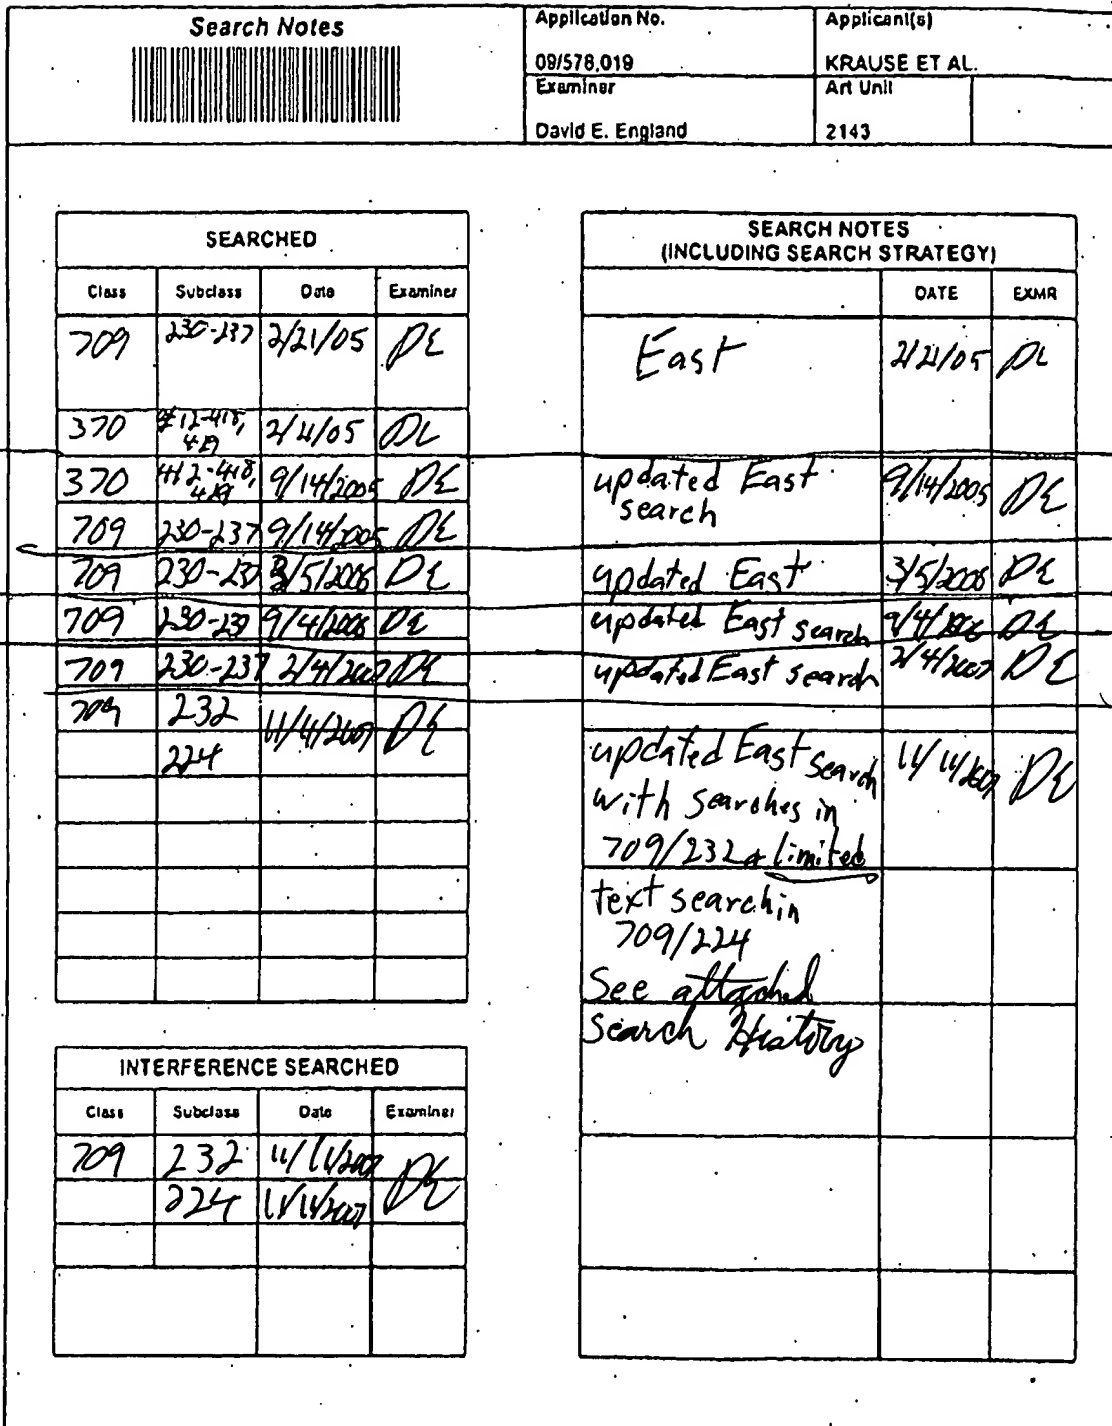 Search Notes
Application No.
09/578,019
Applicant(s)
KRAUSE ET AL.
Examiner
David E. England
Art Unit
2143
SEARCHED
Class Subclass Date Examiner
709 230-237 2/21/05 DE
370 412-418, 2/21/05 DE
419
370 412-418, 9/14/2005 DE
419
709 230-237 9/14/2005 DE
709 230-237 3/5/2006 DE
709 230-237 9/4/2006 DE
709 230-237 2/4/2007 DE
709 232 DE
224
INTERFERENCE SEARCHED
Class Subclass Date Examiner
709 232 DE
224
SEARCH NOTES
(INCLUDING SEARCH STRATEGY)
DATE EXMR
East 2/21/05 DE
updated East 9/14/2005 DE
search
updated East 3/5/2006 DE
updated East search 9/4/2006 DE
updated East search 2/4/2007 DE
updated East search DE
with searches in
709/232 limited
text search in
709/224
See attached
Search History